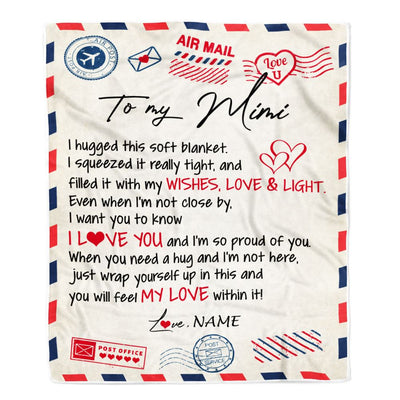 AIR POST
AIR MAIL
Love
U
To my Mimi
I hugged this soft blanket.
I squeezed it really tight, and
filled it with my WISHES, LOVE & LIGHT.
Even when I'm not close by,
I want you to know
I L❤VE YOU and I'm so proud of you.
When you need a hug and I'm not here,
just wrap yourself up in this and
you will feel MY LOVE within it!
Love, NAME
POST OFFICE
POST
SERVICE